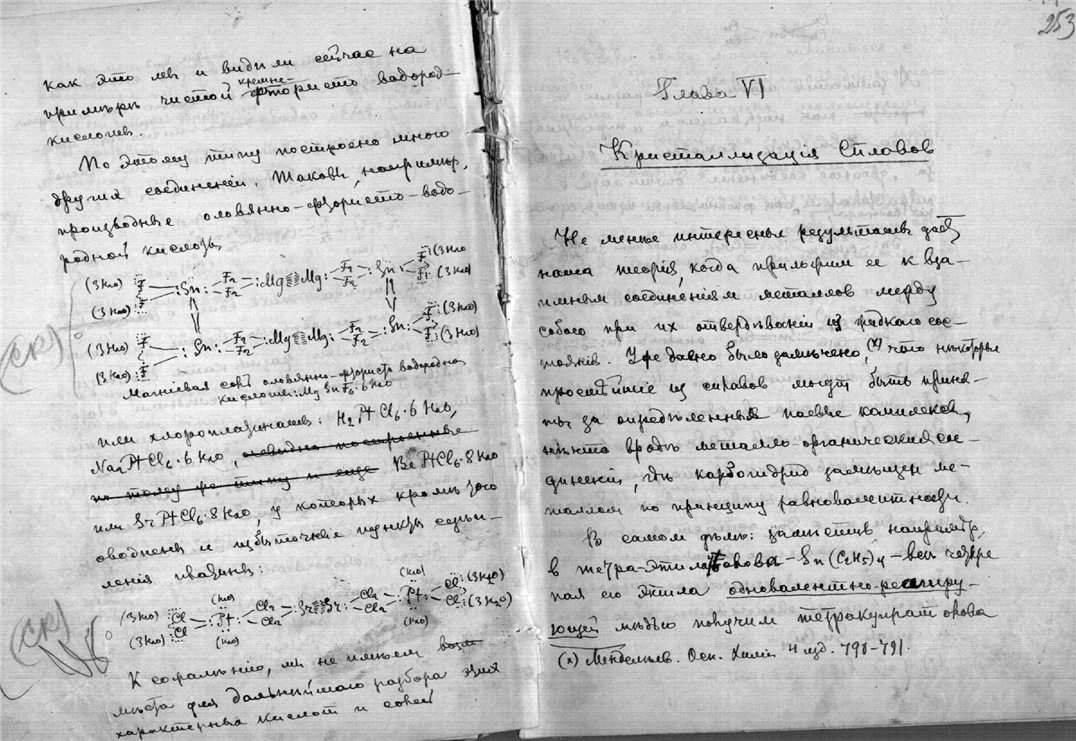 как это мы и видѣли сейчас на
примѣрѣ чистой кремне-фтористо водород-
кислоты.
По этому типу построено много
других соединеній. Таковы, напримѣр,
производные оловянно-фтористо-водо-
родной кислоты
(3H2O) F F (3H2O)
(3H2O) F Sn F2 F2 Mg Mg F2 F2 Sn F (3H2O)
(3H2O) F Sn F2 F2 Mg Mg F2 F2 Sn F (3H2O)
(3H2O) F F (3H2O)
(СК)
Магніевая соль оловянно-фтористо водородной
кислоты: MgSnF6·6H2O
или хлороплатинаты: H2PtCl6·6H2O,
Na2PtCl6·6H2O, очевидно построенные
по тому же типу и еще BePtCl6·8H2O
или SrPtCl6·8H2O, у которых кромѣ того
оводнены и избыточные пункты сѣпи-
ленія
(H2O) (H2O)
(3H2O) Cl Pt Cl2 Cl2 Sr Sr Cl2 Cl2 Pt Cl (3H2O)
(3H2O) Cl Cl (3H2O)
(H2O) (H2O)
(СК)
К сожалѣнію, мы не имѣем
мѣста для дальнѣйшаго разбора этих
характерных кислот и солей
253
Глава VI
Кристаллизація Сплавов
Не менѣе интересные результаты дает
наша теорія, когда приложим ее к вза-
имным соединеніям металлов между
собою при их отвердѣваніи из жидкого сос-
тоянія. Уже давно было замѣчено, (х) что нѣкоторые
простѣйшіе из сплавов могут быть приня-
ты за опредѣленные паевые комплексы,
нѣчто вродѣ металло органических сое-
диненій, гдѣ карбогидрид замѣщен ме-
таллом по принципу равновалентности.
В самом дѣлѣ: замѣстив, напримѣр,
в тетра-этил олова - Sn(C2H5)4 - всѣ четыре
пая его этила одновалентно-реагиру-
ющей мѣдью получим тетракупрат олова
(х) Менделѣев. Осн. Химіи 4 изд. 790-791.